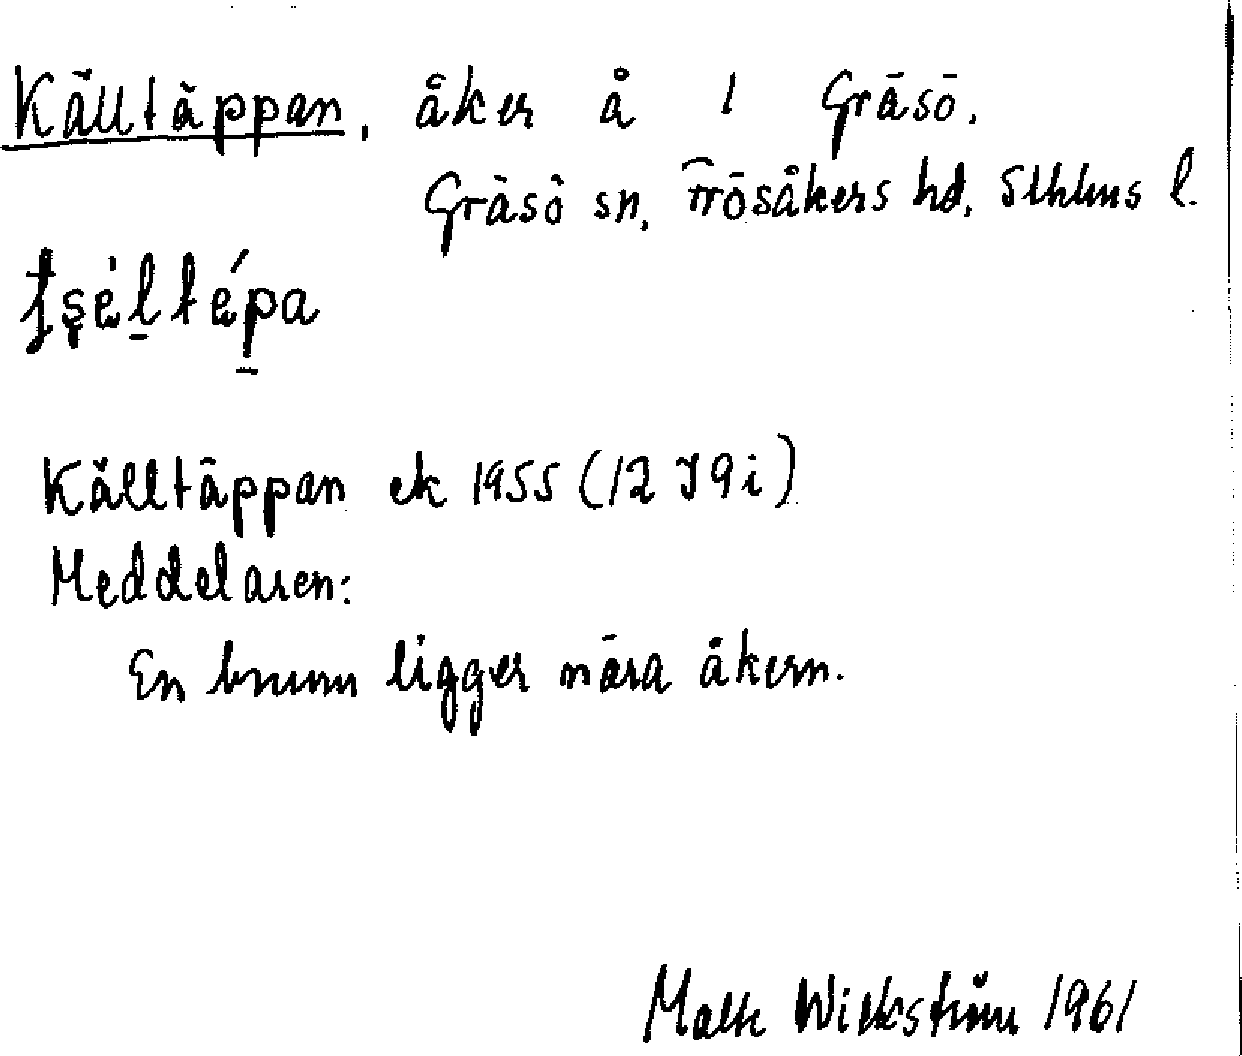 Källtäppan, åker å 1 Gräsö.
Gräsö sn, Frösåkers hd, Sthlms l.
Källtäppan ek 1955 (12 I 9 i)
Meddelaren:
En brunn ligger nära åkern.
Wickström 1961